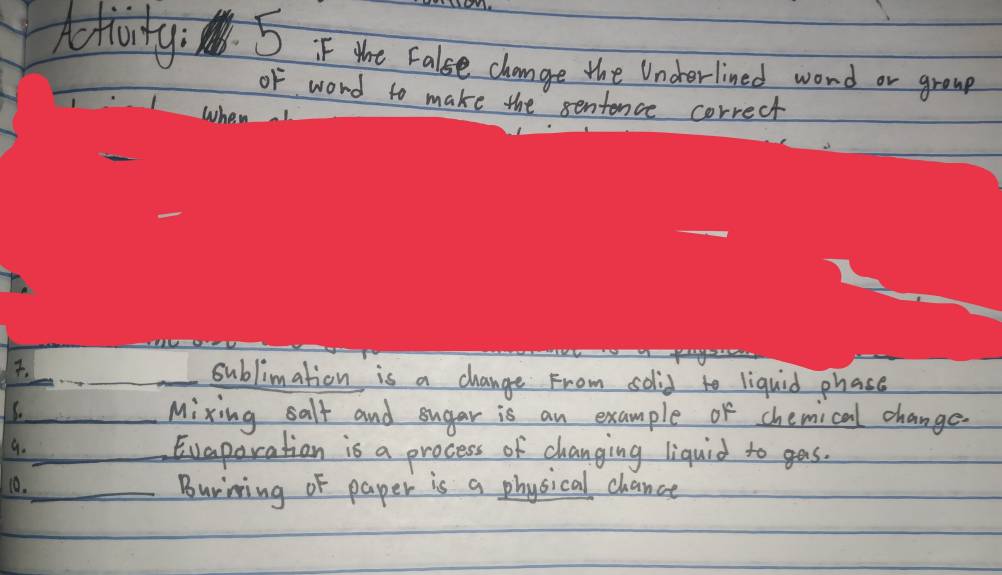 Activity: 5 if the False change the Underlined word or group
of word to make the sentence correct
When
7. sublimation is a change From solid to liquid phase
8. Mixing salt and sugar is an example of chemical change.
9. Evaporation is a process of changing liquid to gas.
10. Burning of paper is a physical change